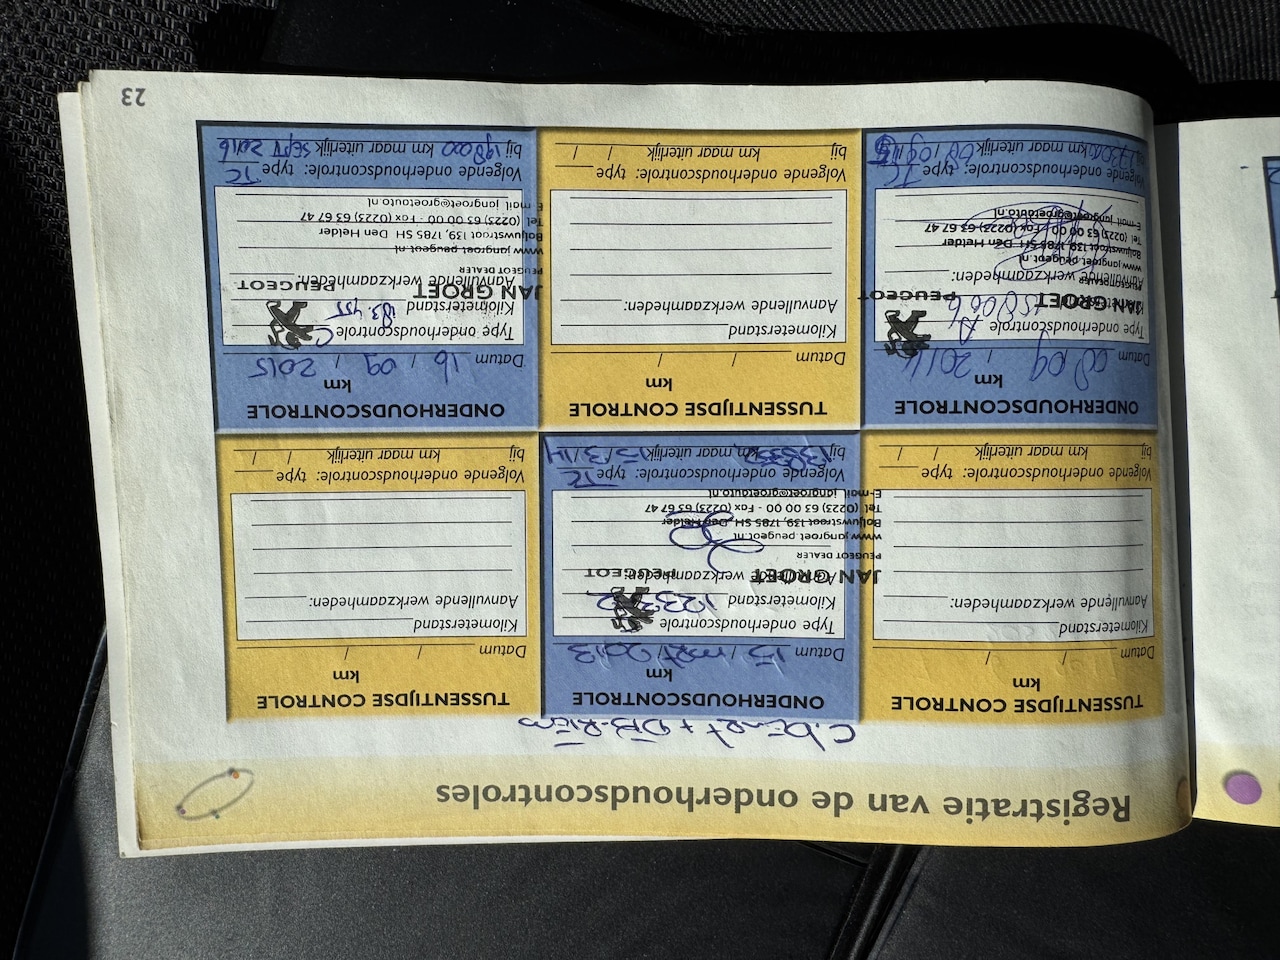 Registratie van de onderhoudscontroles
TUSSENTIJDSE CONTROLE
km
Datum / /
Kilometerstand
Aanvullende werkzaamheden:
Volgende onderhoudscontrole: type
bij km maar uiterlijk / /
ONDERHOUDSCONTROLE
km
Datum 15 / mrt / 2013
Type onderhoudscontrole
Kilometerstand
Aanvullende werkzaamheden:
JAN GROET PEUGEOT
PEUGEOT DEALER
www.jangroet.peugeot.nl
Boljuwstraat 139, 1785 SH Den Helder
Tel. (0223) 63 00 00 - Fax (0223) 63 67 47
E-mail jangroet@groetauto.nl
Volgende onderhoudscontrole: type TC
bij km maar uiterlijk 15/3/14
TUSSENTIJDSE CONTROLE
km
Datum / /
Kilometerstand
Aanvullende werkzaamheden:
Volgende onderhoudscontrole: type
bij km maar uiterlijk / /
ONDERHOUDSCONTROLE
km
Datum 08 09 / 2014
Type onderhoudscontrole A
158006
Aanvullende werkzaamheden:
JAN GROET PEUGEOT
PEUGEOT DEALER
www.jangroet.peugeot.nl
Boljuwstraat 139, 1785 SH Den Helder
Tel. (0223) 63 00 00 - Fax (0223) 63 67 47
E-mail jangroet@groetauto.nl
Volgende onderhoudscontrole: type TC
bij km maar uiterlijk 08/09/15
TUSSENTIJDSE CONTROLE
km
Datum / /
Kilometerstand
Aanvullende werkzaamheden:
Volgende onderhoudscontrole: type
bij km maar uiterlijk / /
ONDERHOUDSCONTROLE
km
Datum 16 / 09 / 2015
Type onderhoudscontrole C
Kilometerstand 183.455
JAN GROET PEUGEOT
Aanvullende werkzaamheden:
PEUGEOT DEALER
www.jangroet.peugeot.nl
Boljuwstraat 139, 1785 SH Den Helder
Tel. (0223) 63 00 00 - Fax (0223) 63 67 47
E-mail jangroet@groetauto.nl
Volgende onderhoudscontrole: type TC
bij 198000 km maar uiterlijk SEPT 2016
23